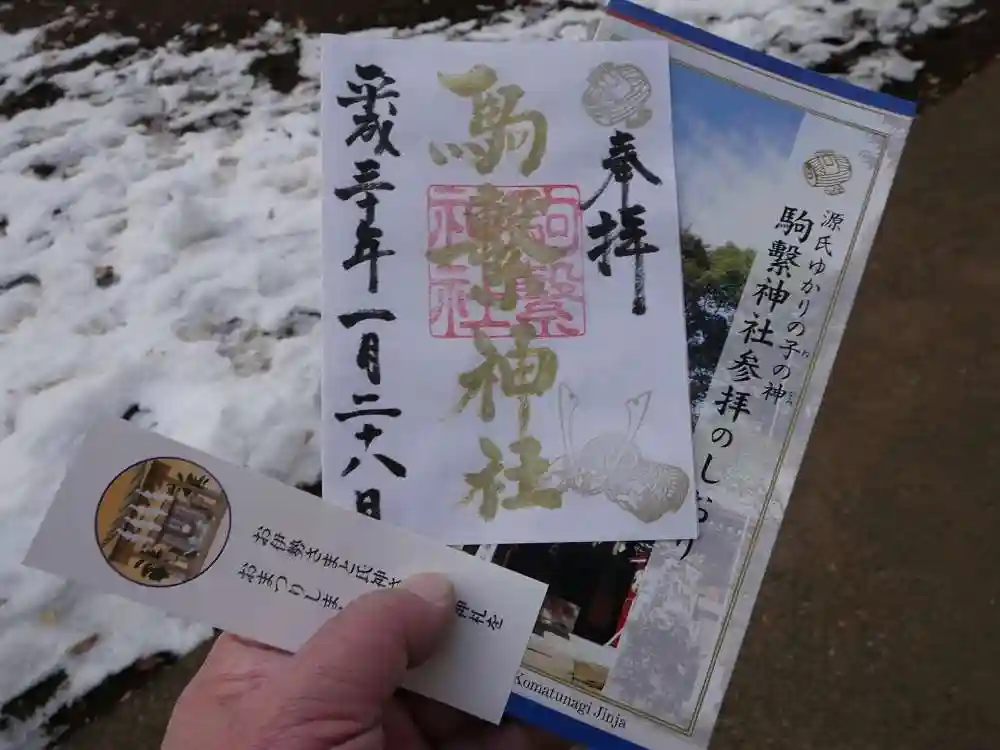 奉拝
駒繫神社
駒繫
神社
平成三十年一月二十八日
源氏ゆかりの子の神
駒繫神社参拝のしおり
Komatunagi Jinja
お伊勢さまと氏神さ
神札を
おまつりしま